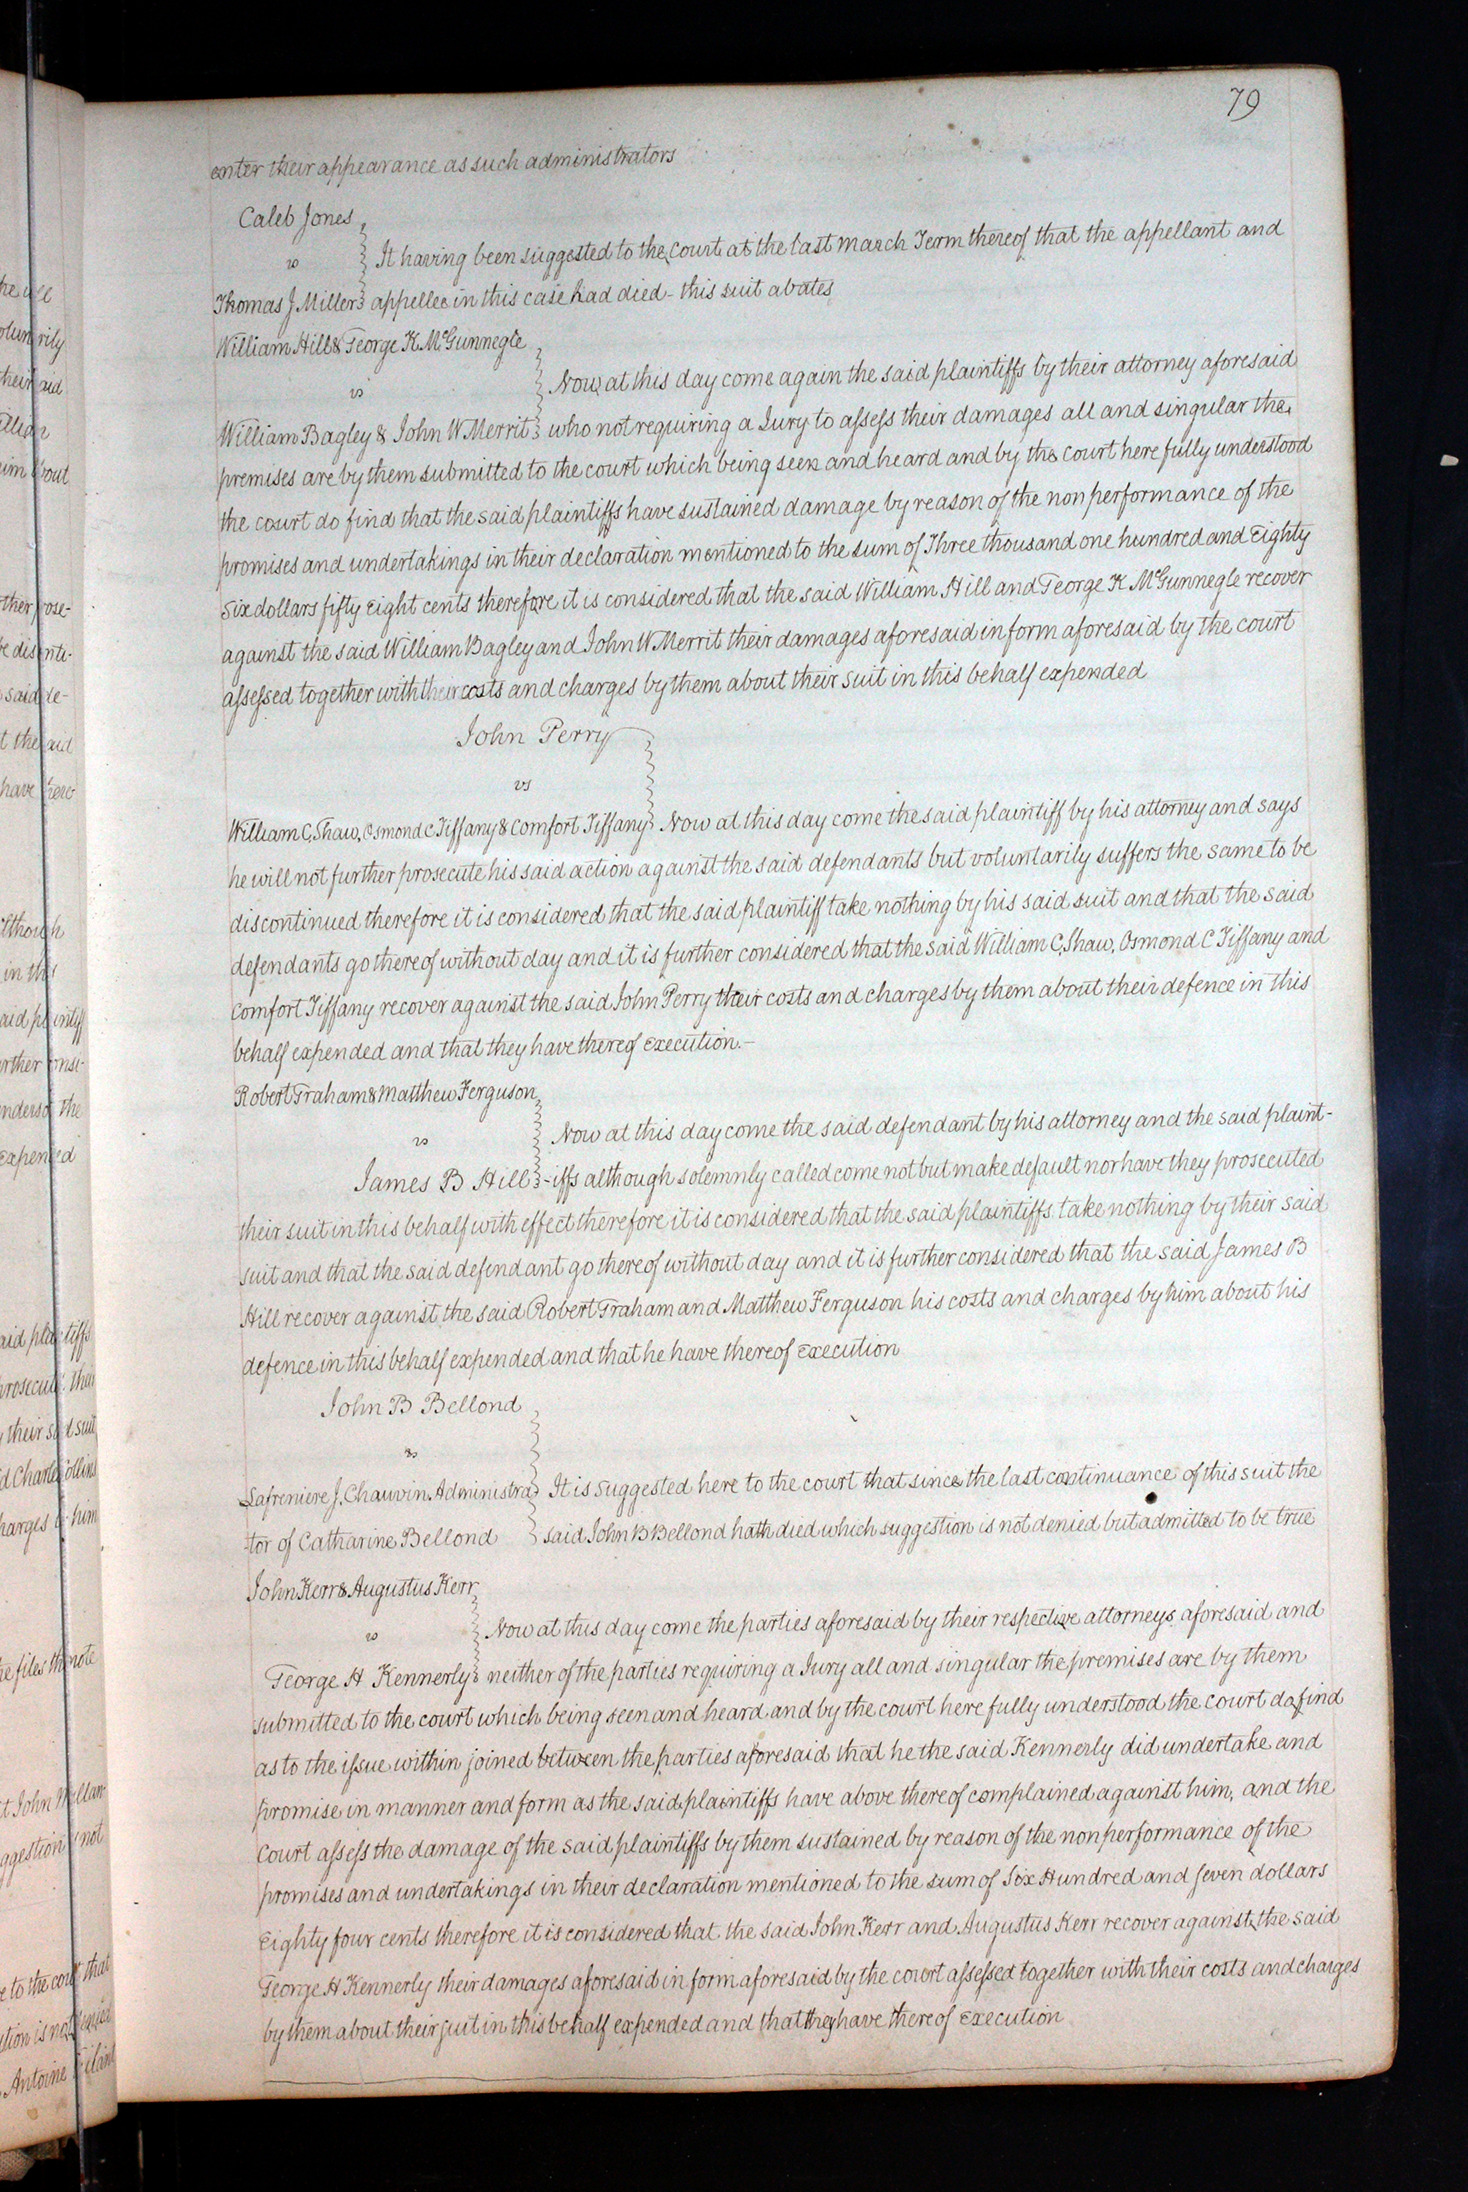 79
enter their appearance as such administrators
Caleb Jones
vs
It having been suggested to the court at the last march Term thereof that the appellant and
Thomas J Miller appellee in this case had died - this suit abates
William Hill & George K McGunnegle
vs
Now at this day come again the said plaintiffs by their attorney aforesaid
William Bagley & John W Merrit who not requiring a Jury to assess their damages all and singular the
premises are by them submitted to the court which being seen and heard and by the court here fully understood
the court do find that the said plaintiffs have sustained damage by reason of the non performance of the
promises and undertakings in their declaration mentioned to the sum of Three thousand one hundred and Eighty
six dollars fifty Eight cents therefore it is considered that the said William Hill and George K McGunnegle recover
against the said William Bagley and John W Merrit their damages aforesaid in form aforesaid by the court
assessed together with their costs and charges by them about their suit in this behalf expended
John Perry
vs
William C. Shaw, Osmond C Tiffany & Comfort Tiffany Now at this day come the said plaintiff by his attorney and says
he will not further prosecute his said action against the said defendants but voluntarily suffers the same to be
discontinued therefore it is considered that the said plaintiff take nothing by his said suit and that the said
defendants go thereof without day and it is further considered that the said William C. Shaw, Osmond C Tiffany and
Comfort Tiffany recover against the said John Perry their costs and charges by them about their defence in this
behalf expended and that they have thereof Execution.-
Robert Graham & Matthew Ferguson
vs
Now at this day come the said defendant by his attorney and the said plaint-
James B Hill -iffs although solemnly called come not but make default nor have they prosecuted
their suit in this behalf with effect therefore it is considered that the said plaintiffs take nothing by their said
suit and that the said defendant go thereof without day and it is further considered that the said James B
Hill recover against the said Robert Graham and Matthew Ferguson his costs and charges by him about his
defence in this behalf expended and that he have thereof Execution
John B Bellond
vs
Lafreniere J. Chauvin Administra- It is suggested here to the court that since the last continuance of this suit the
-tor of Catharine Bellond said John B Bellond hath died which suggestion is not denied but admitted to be true
John Kerr & Augustus Kerr
vs
Now at this day come the parties aforesaid by their respective attorneys aforesaid and
George H Kennerly neither of the parties requiring a Jury all and singular the premises are by them
submitted to the court which being seen and heard and by the court here fully understood the court do find
as to the issue within joined between the parties aforesaid that he the said Kennerly did undertake and
promise in manner and form as the said plaintiffs have above thereof complained against him, and the
Court assess the damage of the said plaintiffs by them sustained by reason of the non performance of the
promises and undertakings in their declaration mentioned to the sum of Six Hundred and seven dollars
Eighty four cents therefore it is considered that the said John Kerr and Augustus Kerr recover against the said
George H Kennerly their damages aforesaid in form aforesaid by the court assessed together with their costs and charges
by them about their suit in this behalf expended and that they have thereof Execution